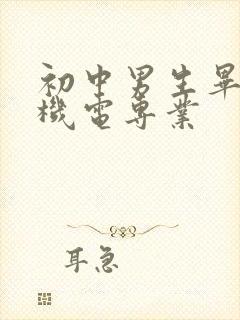 初中男生畢
機電專業
耳急